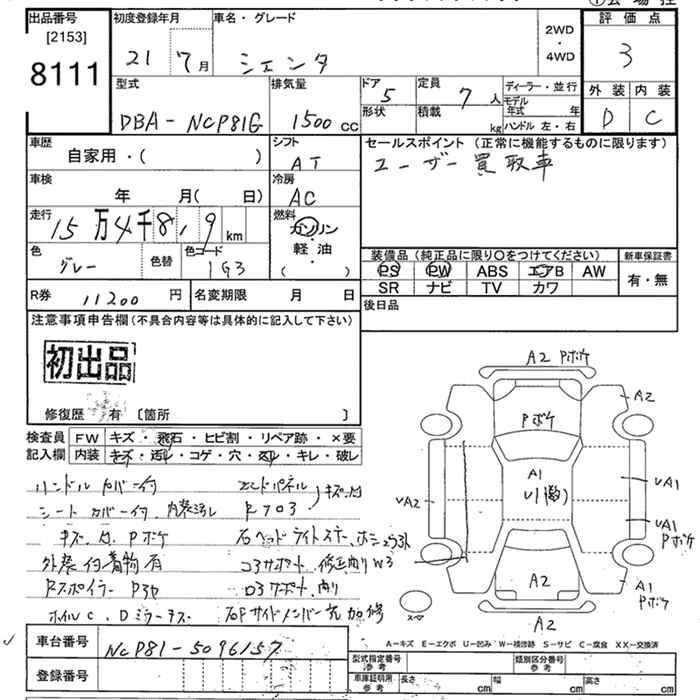 出品番号
[2153]
8111
初度登録年月
21 7月
車名・グレード
シエンタ
2WD
・
4WD
評価点
3
外装 内装
D C
型式
DBA-NCP81G
排気量
1500 CC
ドア 5
形状
定員 7 人
積載 kg
ディーラー・並行
モデル
年式 年
ハンドル 左・右
車歴
自家用・( )
シフト
AT
セールスポイント (正常に機能するものに限ります)
ユーザー買取車
車検
年 月(日)
冷房
AC
走行
15万4千8,9 km
燃料
ガソリン
・
軽油
( )
色
グレー
色替
色コード
1G3
装備品(純正品に限り○をつけてください)
新車保証書
PS PW ABS エアB AW
有・無
SR ナビ TV カワ
R券 11200 円
名変期限 月 日
後日品
注意事項申告欄(不具合内容等は具体的に記入して下さい)
初出品
修復歴 有 〔箇所 〕
検査員
記入欄
FW キズ・飛石・ヒビ割・リペア跡・×要
内装 キズ・汚れ・コゲ・穴・スレ・キレ・破レ
ハンドルカバー付
シートカバー付 内装汚レ
キズ、凹、Pボケ
外装付着物有
Rスポイラー
ホイルC、Dミラー
エンドパネル
Rフロア
キズ、凹
右ヘッドライトステー
コアサポート、修正
コアサポート、
右Fサイドメンバー先 加修
A2 Pボケ
A2
Pボケ
A1
U1
A2
A2
A1
Pボケ
A1
Pボケ
A2
スペア
A2
A-キズ E-エクボ U-凹み W-補修跡 S-サビ C-腐食 XX-交換済
車台番号 NCP81-5096157
登録番号
型式指定番号
参考
類別区分番号
参考
車庫証明用
参考
長さ cm 幅 cm 高さ cm